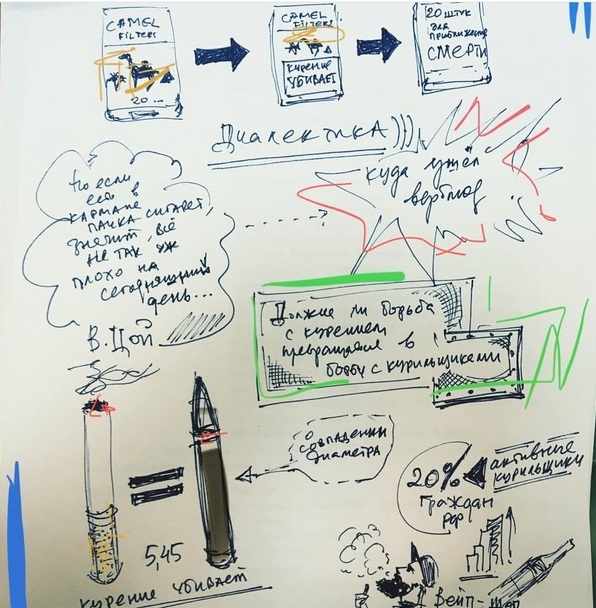 CAMEL
FILTERS
20 ...
CAMEL
FILTERS
КУРЕНИЕ
УБИВАЕТ
20 ШТУК
ДЛЯ
ПРИБЛИЖЕНИЯ
СМЕРТИ
ДИАЛЕКТИКА)))
Но если
есть в
КАРМАНЕ
ПАЧКА СИГАРЕТ,
ЗНАЧИТ, ВСЁ
НЕ ТАК УЖ
ПЛОХО НА
СЕГОДНЯШНИЙ
день...
В. ЦОЙ
куда ушёл
верблюд
Должна ли борьба
с курением
превращаться в
борьбу с курильщиками
О
СОВПАДЕНИИ
ДИАМЕТРА
5,45
курение убивает
20%
граждан
РФ
активные
курильщики
Вейп-шоп